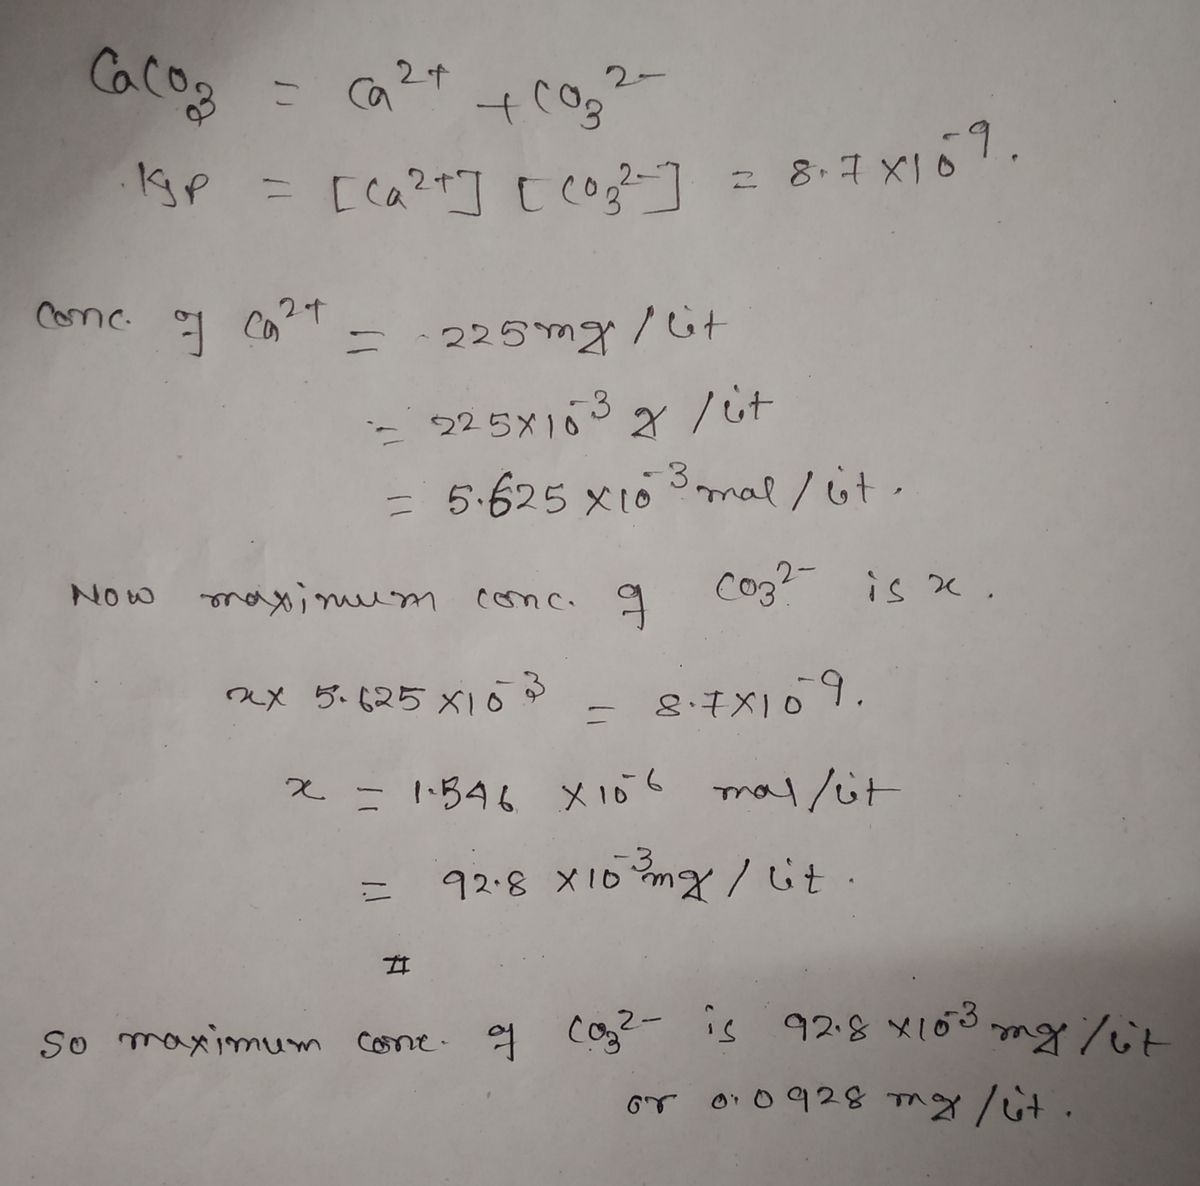 CaCO₃ = Ca²⁺ + CO₃²⁻
Ksp = [Ca²⁺] [CO₃²⁻] = 8.7 × 10⁻⁹.
Conc. of Ca²⁺ = 225 mg / lit
= 225 × 10⁻³ g / lit
= 5.625 × 10⁻³ mol / lit.
Now maximum conc. of CO₃²⁻ is x.
x × 5.625 × 10⁻³ = 8.7 × 10⁻⁹.
x = 1.546 × 10⁻⁶ mol / lit
= 92.8 × 10⁻³ mg / lit.
So maximum conc. of CO₃²⁻ is 92.8 × 10⁻³ mg / lit
or 0.0928 mg / lit.